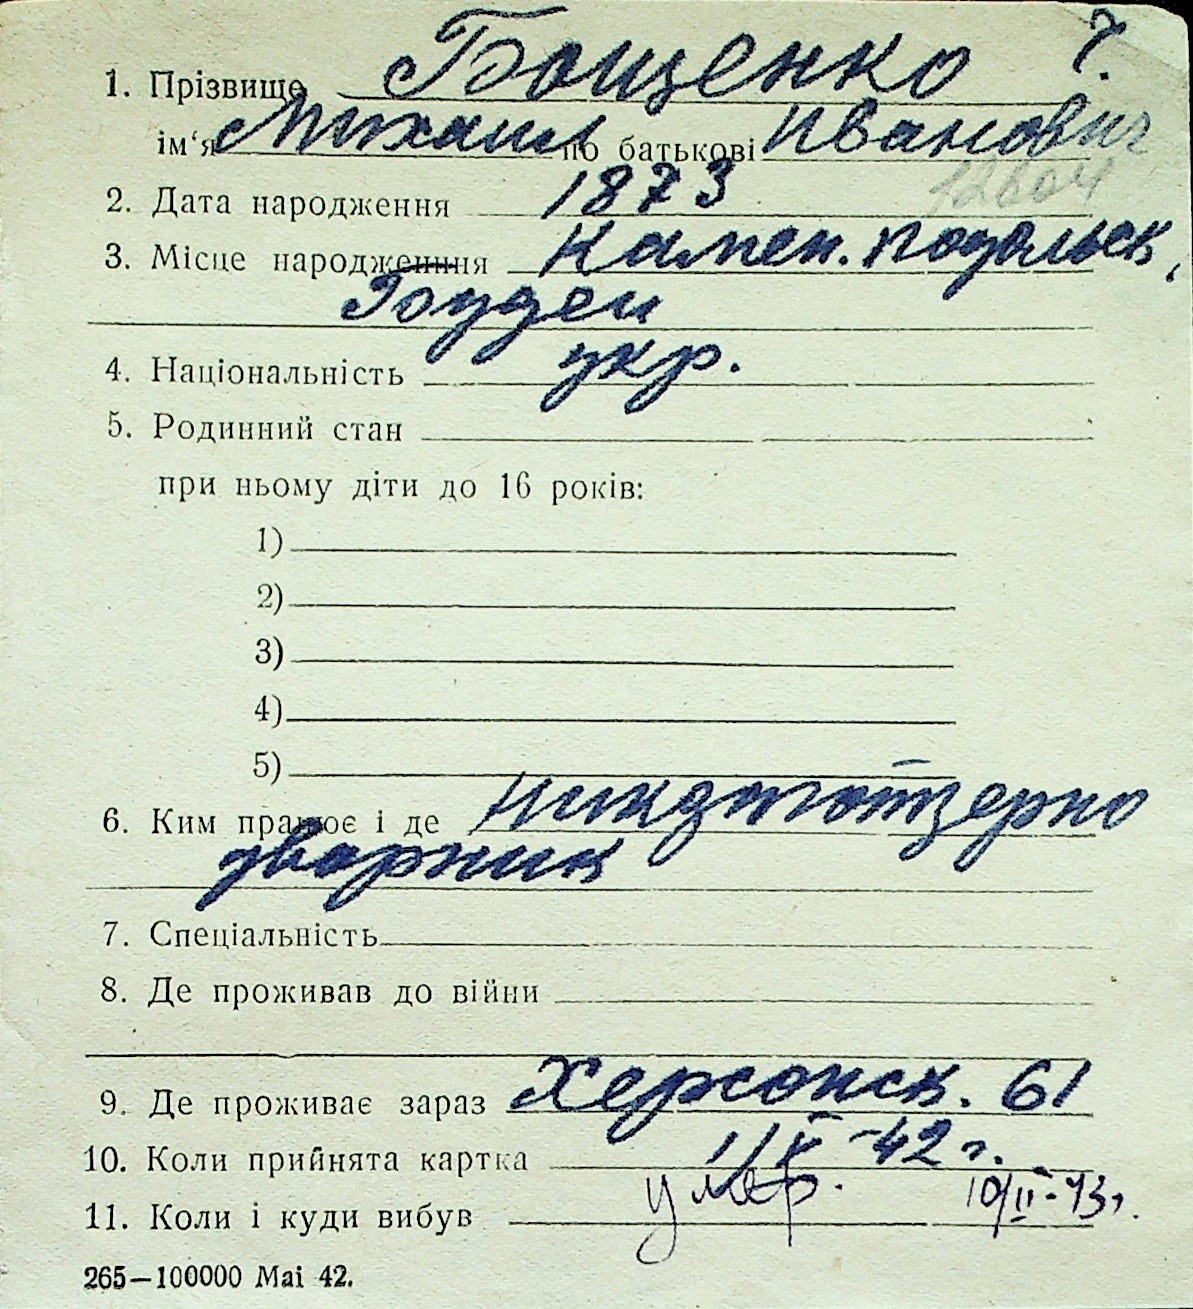 Ч.
1. Прізвище Бощенко
ім'я Михаил по батькові Иванович
2. Дата народження 1873
3. Місце народження Камен. Подольск,
4. Національність укр.
5. Родинний стан
при ньому діти до 16 років:
1)
2)
3)
4)
5)
6. Ким працює і де
дворник
7. Спеціальність
8. Де проживав до війни
9. Де проживає зараз Херсонск. 61
10. Коли прийнята картка 1/X -42 г.
11. Коли і куди вибув умер. 10/II-43 г.
265—100000 Mai 42.